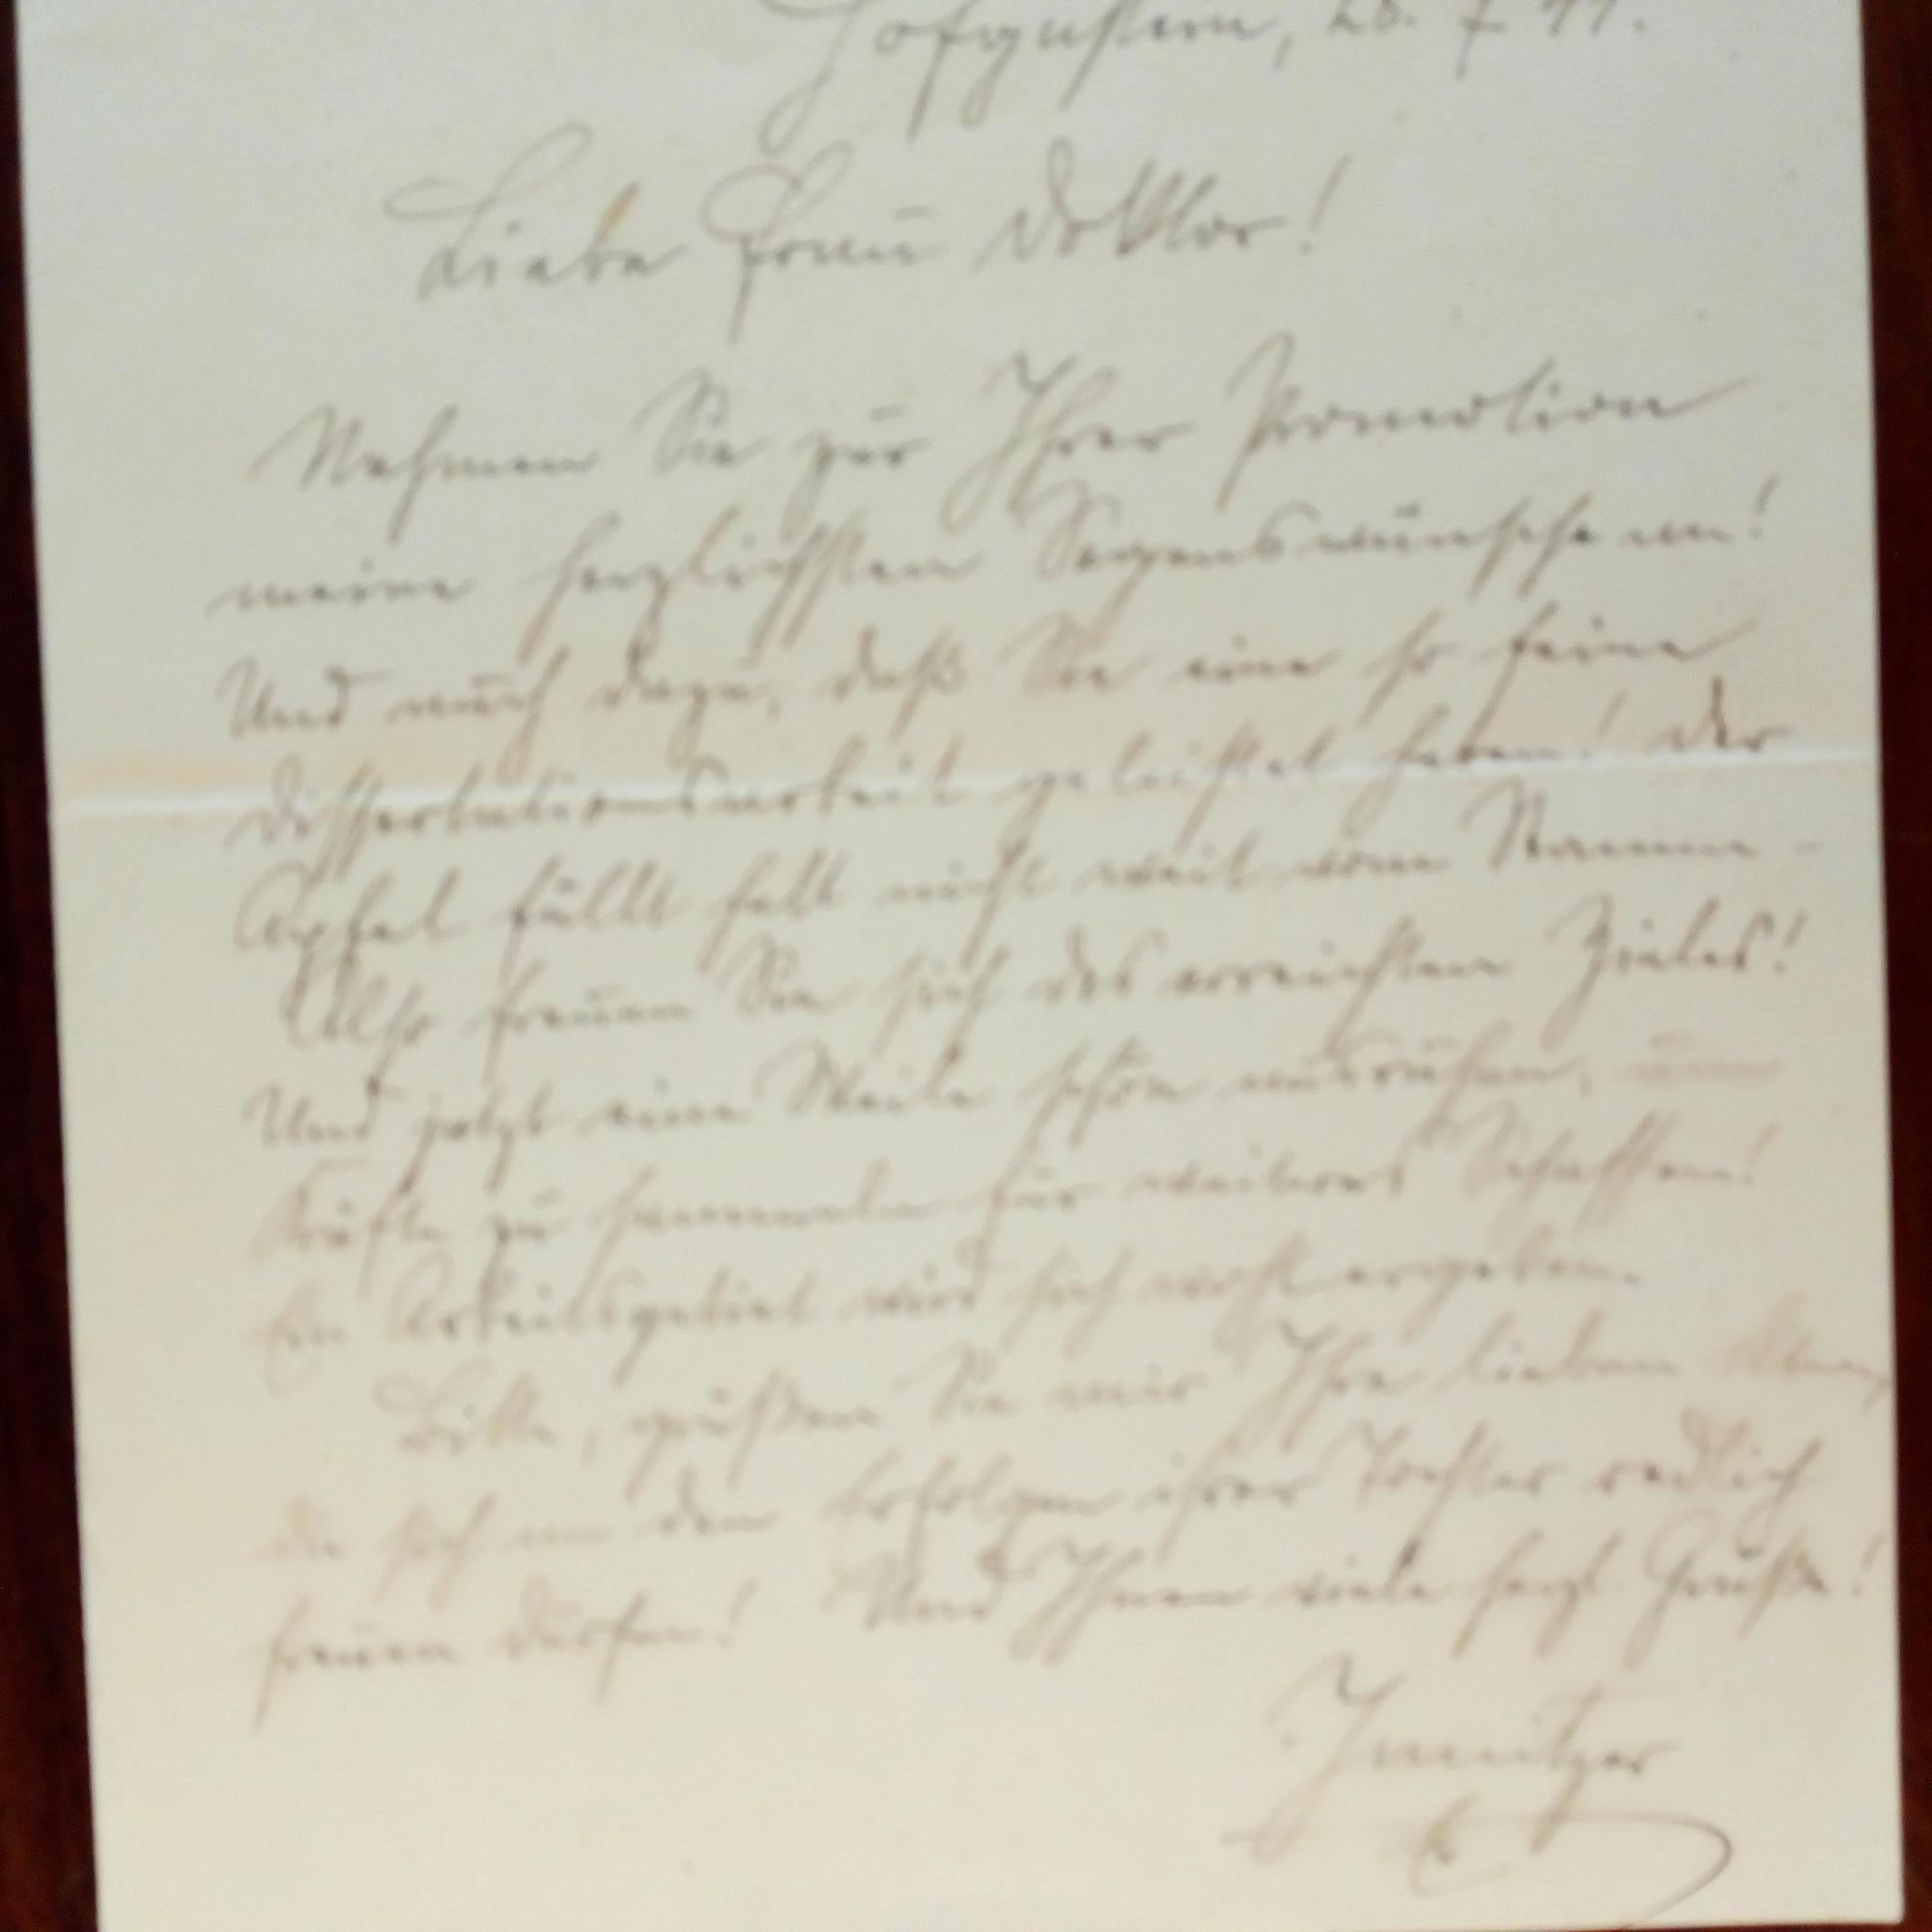 Hofgastein,
Liebe Frau Doktor!
Nehmen Sie zur Ihrer Promotion
meine herzlichsten Segenswünsche an!
Und auch dazu, daß Sie eine so feine
Dissertationsarbeit geleistet haben! Der
Apfel fällt halt nicht weit vom Stamm -
Also freuen Sie sich des erreichten Zieles!
Und jetzt eine Weile schön ausruhen, um
Kräfte zu sammeln für weiteres Schaffen!
Ein Arbeitsgebiet wird sich wohl ergeben.
Bitte, grüßen Sie mir Ihre lieben Eltern,
die sich an den Erfolgen ihrer Tochter redlich
freuen dürfen! Und Ihnen viele herzl. Grüße!
Innitzer